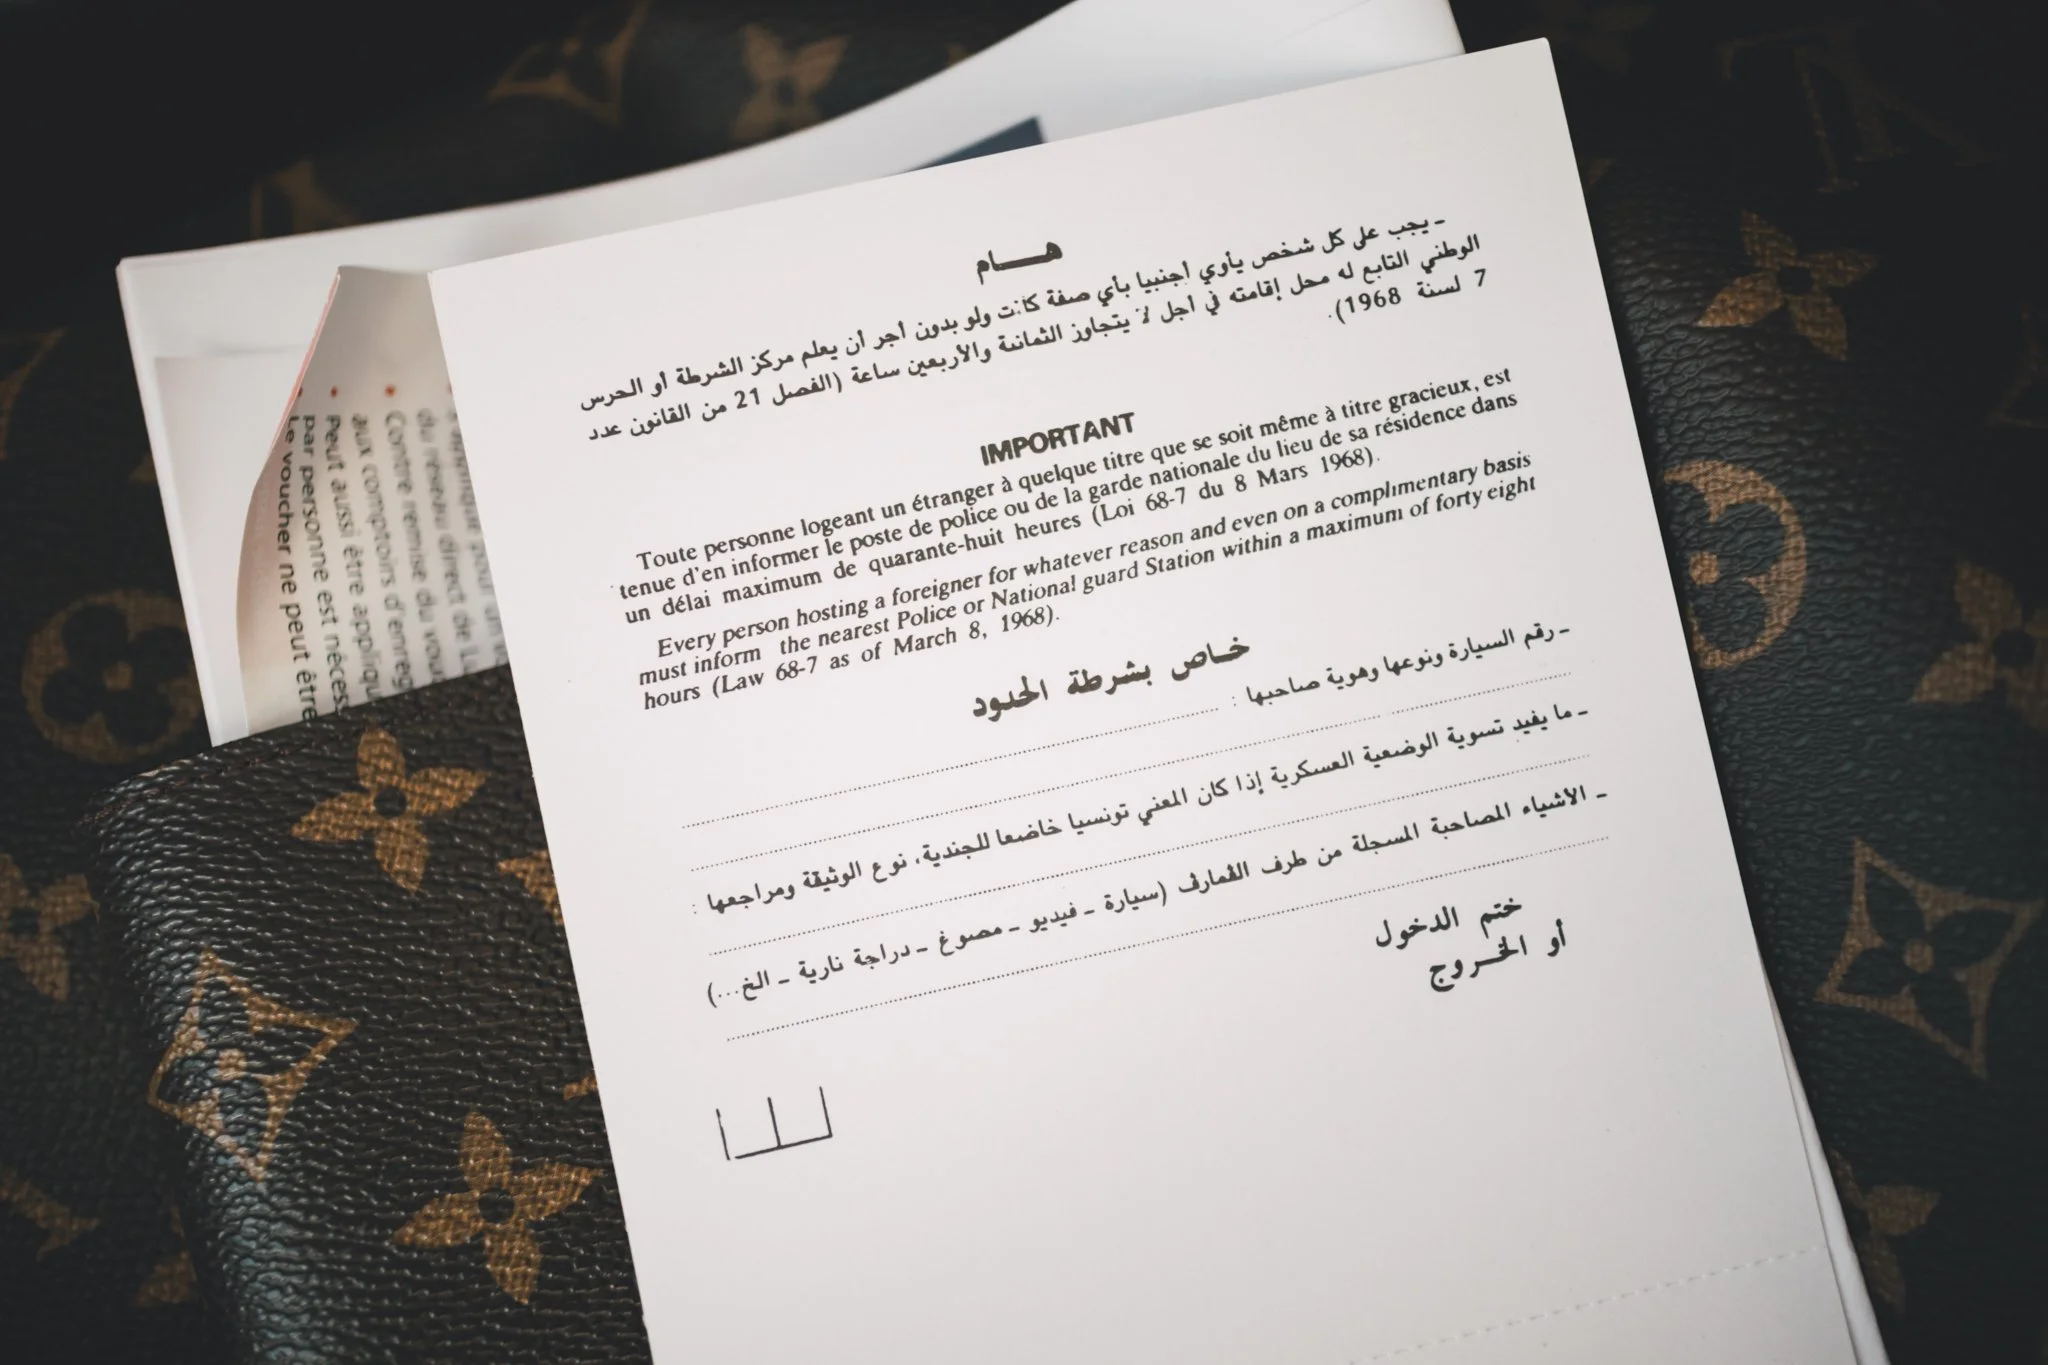 هــــام
ـ يجب على كل شخص يأوي أجنبيا بأي صفة كانت ولو بدون أجر أن يعلم مركز الشرطة أو الحرس
الوطني التابع له محل إقامته في أجل لا يتجاوز الثمانية والأربعين ساعة (الفصل 21 من القانون عدد
7 لسنة 1968).
IMPORTANT
Toute personne logeant un étranger à quelque titre que se soit même à titre gracieux, est
tenue d'en informer le poste de police ou de la garde nationale du lieu de sa résidence dans
un délai maximum de quarante-huit heures (Loi 68-7 du 8 Mars 1968).
Every person hosting a foreigner for whatever reason and even on a complimentary basis
must inform the nearest Police or National guard Station within a maximum of forty eight
hours (Law 68-7 as of March 8, 1968).
خــاص بشرطة الحدود
ـ رقم السيارة ونوعها وهوية صاحبها :
ـ ما يفيد تسوية الوضعية العسكرية إذا كان المعني تونسيا خاضعا للجندية، نوع الوثيقة ومراجعها :
ـ الأشياء المصاحبة المسجلة من طرف القمارق (سيارة ـ فيديو ـ مصوغ ـ دراجة نارية ـ الخ...)
ختم الدخول
أو الخـــروج
du réseau direct de
Contre remise du
aux comptoirs
Peut aussi être
par personne est
Le voucher ne peut être